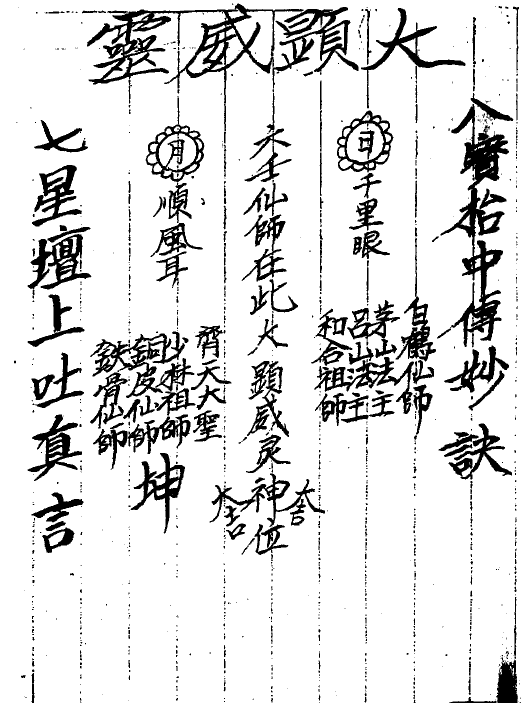 大顯威靈
八寳抬中傳妙訣
白鶴仙師
茅山法主
呂山法主
和合祖師
日
千里眼
大吉
六壬仙師在此大顯威灵神位
大吉
月
順風耳
齊天大聖
沙林祖師
銅皮仙師
鉄骨仙師
坤
七星壇上吐真言